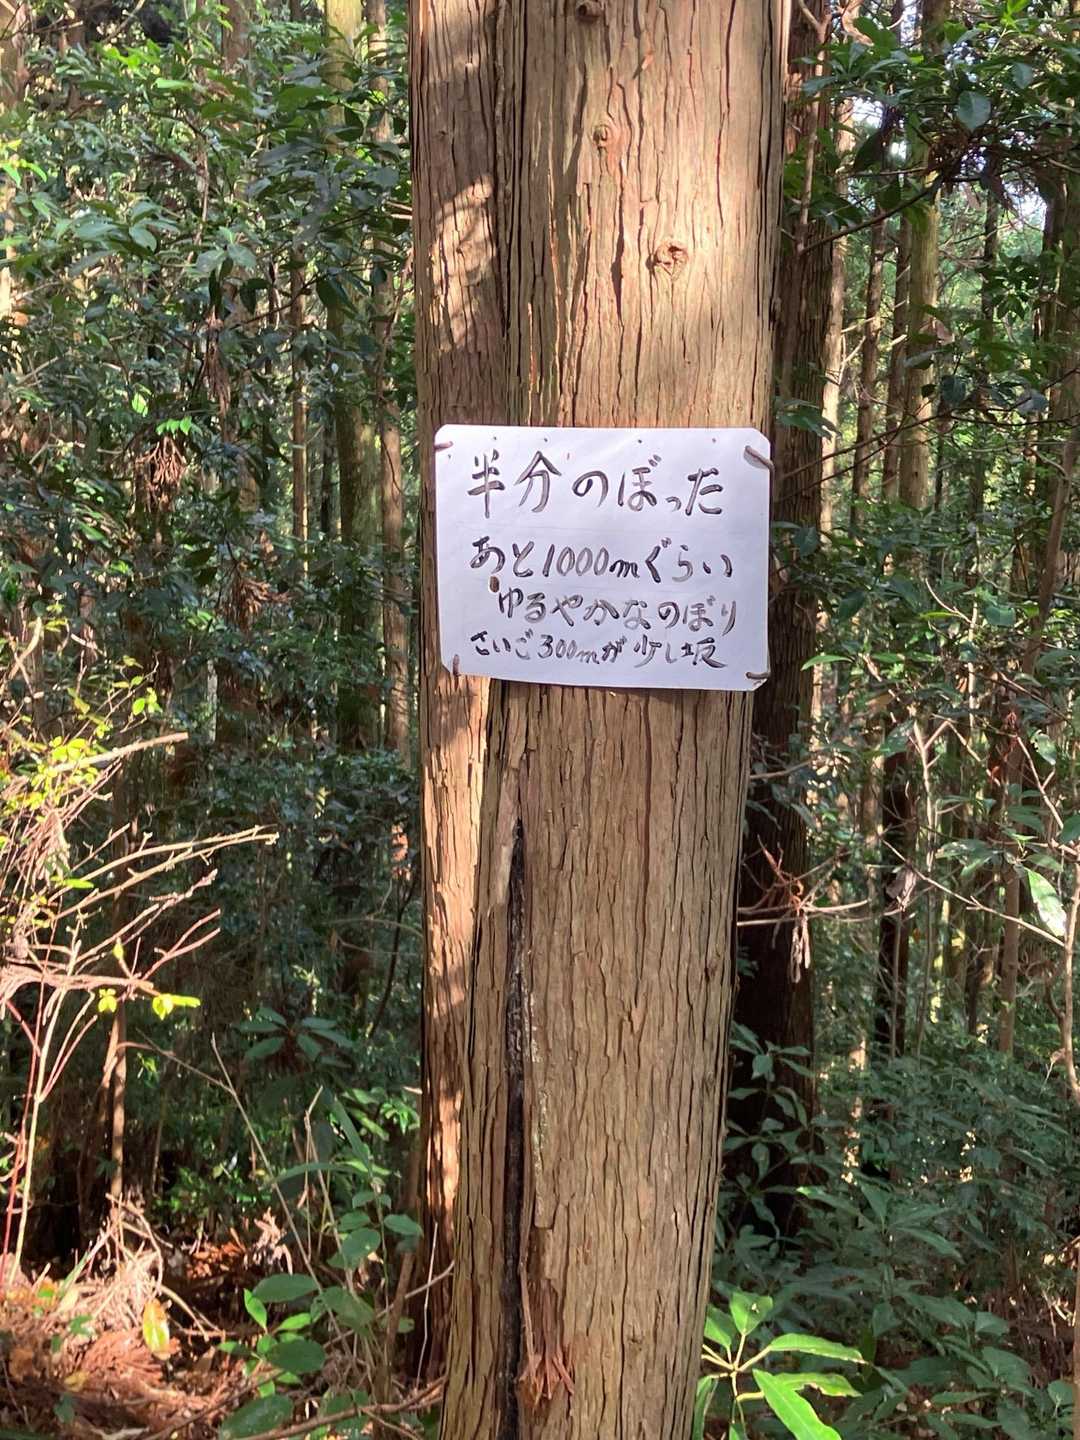 半分のぼった
あと1000mぐらい
ゆるやかなのぼり
さいご300mが少し坂